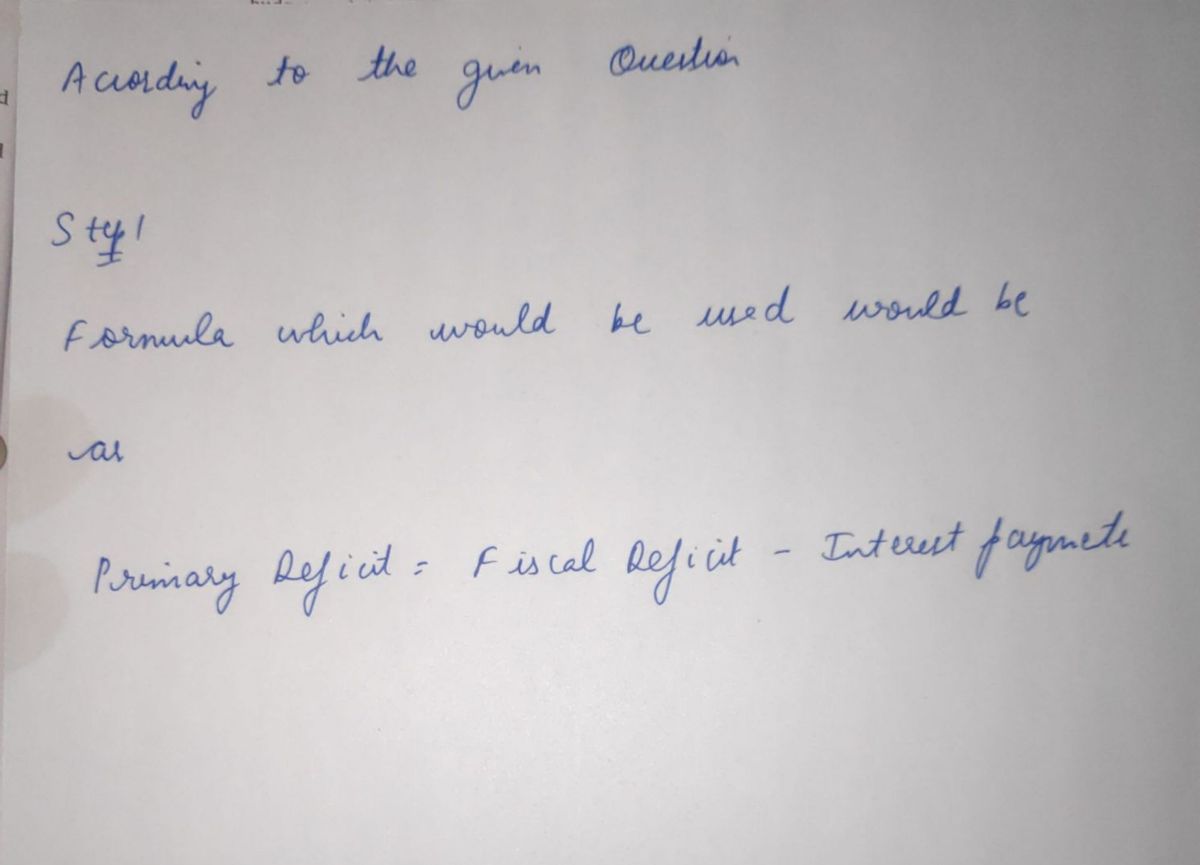 According to the given Question
Step 1
Formula which would be used would be
as
Primary Deficit = Fiscal Deficit - Interest payments